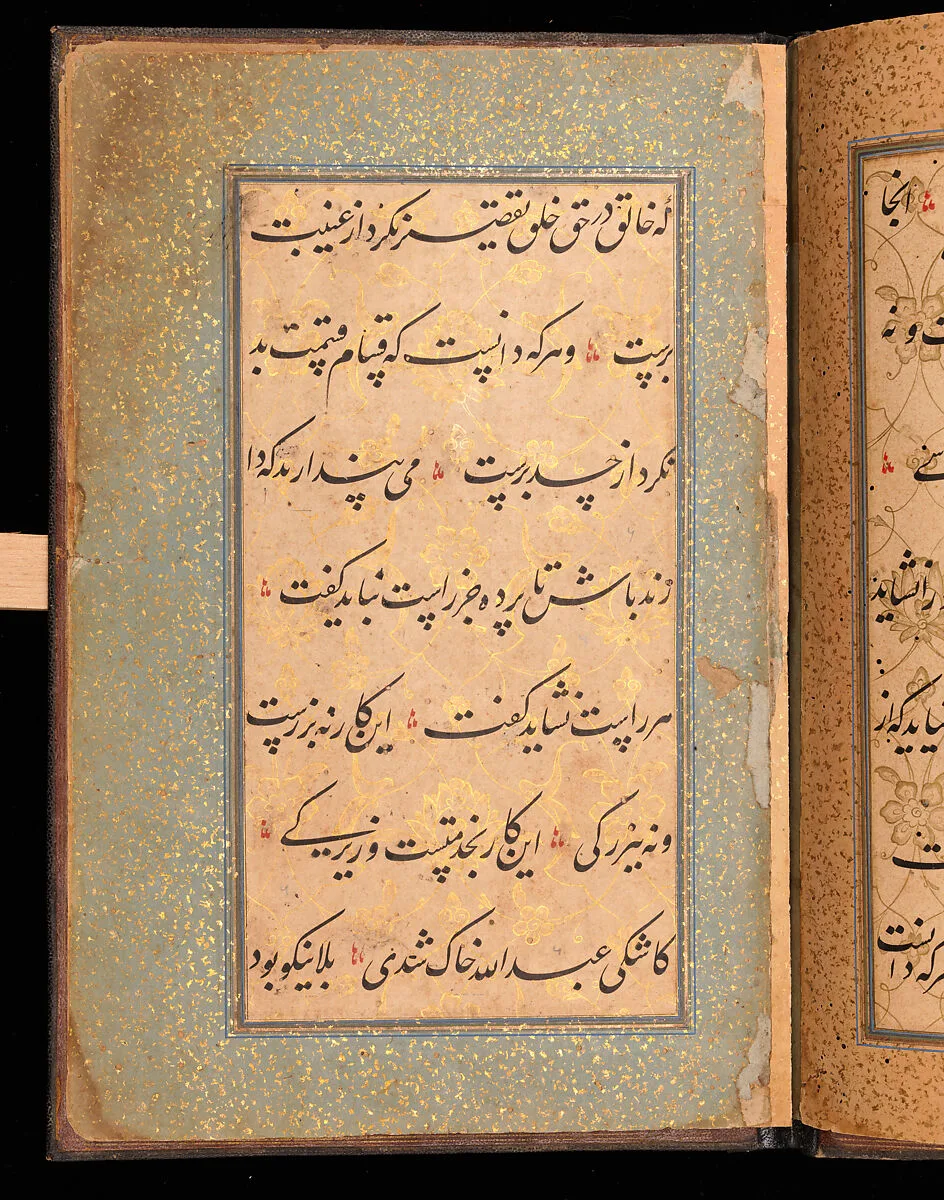 که خالق در حق خلق تقصیر نکرد از غیبت
برست ؞ وهر که دانست که قسام قسمت بد
نکرد از حسد برست ؞ می پندارید که دا
زند باش تا پرده جز راست نباید گفت ؞
هر راست نشاید گفت ؞ این کار نه بزرست
ونه ببزرگی ؞ این کار بخدمتست وزیرکی ؞
کاشکی عبد الله خاک شدی ؞ بلا نیکو بود
انجا ؞
ت و نه
سے ؞
را نشاید
نیاید که از
ت
نست
هر که دا